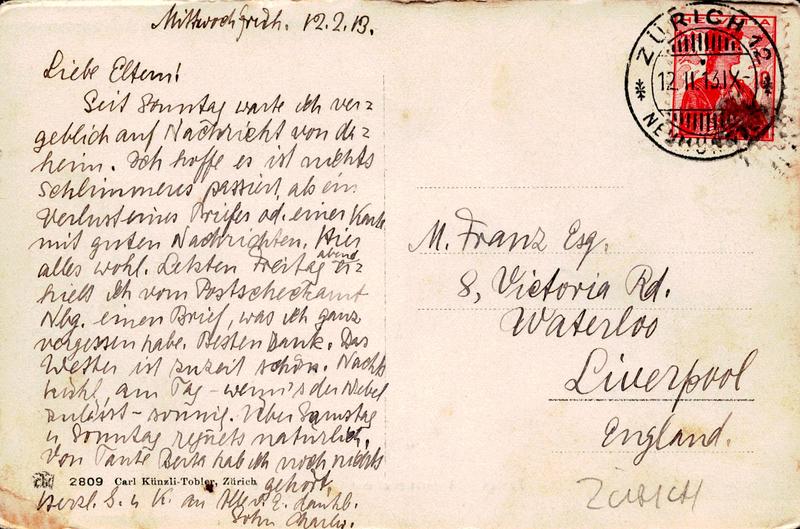 Mittwoch früh. 12.2.13.
Liebe Eltern!
Seit Sonntag warte ich ver=
geblich auf Nachricht von da=
heim. Ich hoffe es ist nichts
schlimmeres passiert, als ein
Verlust eines Briefes od. einer Karte
mit guten Nachrichten. Hier
alles wohl. Letzten Freitag abend er=
hielt ich vom Postscheckamt
Nbg. einen Brief, was ich ganz
vergessen habe. Besten Dank. Das
Wetter ist zurzeit schön. Nachts
kühl, am Tag – wenn's der Nebel
zulässt – sonnig. Über Samstag
u. Sonntag regnets natürlich.
Von Tante Berta hab ich noch nichts
gehört.
Herzl. G. u. K. an
Sohn Charles.
2809 Carl Künzli-Tobler, Zürich
ZÜRICH 12
12.II.13.IX-10
HELVETIA
M. Franz Esq.
8, Victoria Rd.
Waterloo
Liverpool
England.
ZÜRICH